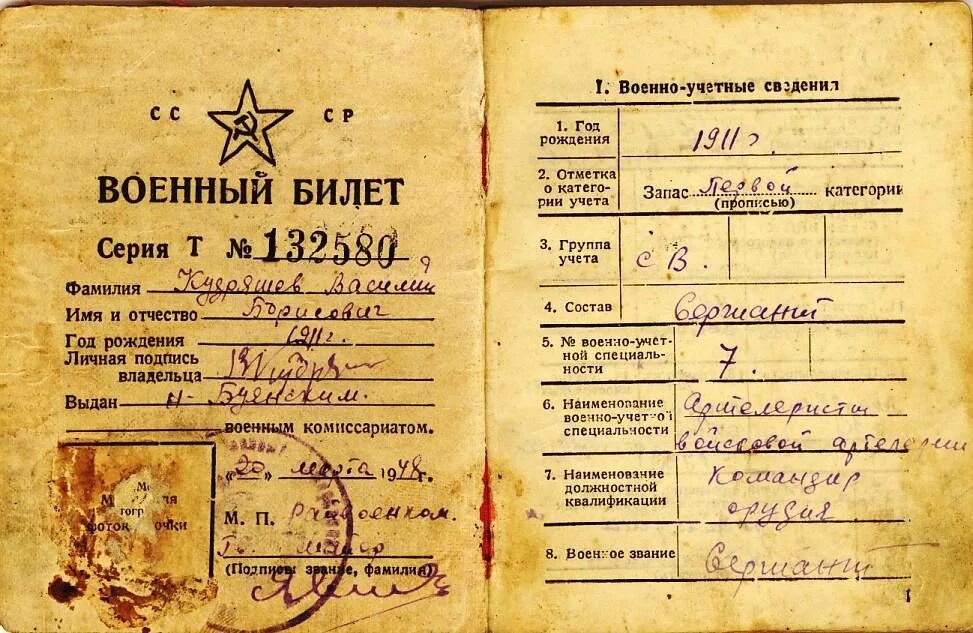 СС СР
ВОЕННЫЙ БИЛЕТ
Серия Т № 132580
Фамилия Кудряшев Василий
Имя и отчество Борисович
Год рождения 1911г.
Личная подпись
владельца
Выдан
военным комиссариатом.
«20» марта 1948г.
М. П. райвоенком.
майор
(Подпись звание, фамилия)
1. Военно-учетные сведения
1. Год
рождения 1911г
2. Отметка
о катего-
рии учета
Запас Первой категории
(прописью)
3. Группа
учета
с В.
4. Состав Сержант
5. № военно-учет-
ной специаль-
ности
7.
6. Наименование
военно-учетной
специальности
Артелеристы
войсковой артелерии
7. Наименование
должностной
квалификации
Командир
орудия
8. Военное звание Сержант